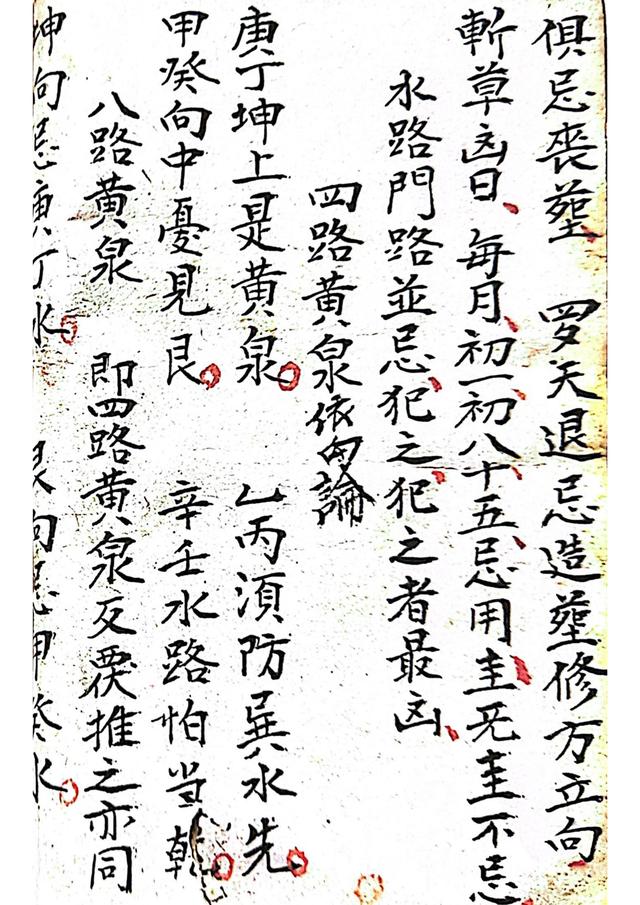 俱忌丧塟 罗天退忌造塟修方立向
斬草凶日每月初一初八十五忌用圭旡圭不忌
水路門路並忌犯之犯之者最凶
四路黄泉依向論
庚丁坤上是黄泉 乙丙湏防巽水先
甲癸向中憂見艮 辛壬水路怕当乾
八路黄泉 即四路黄泉反覄推之亦同
坤向忌庚丁水 艮向忌甲癸水